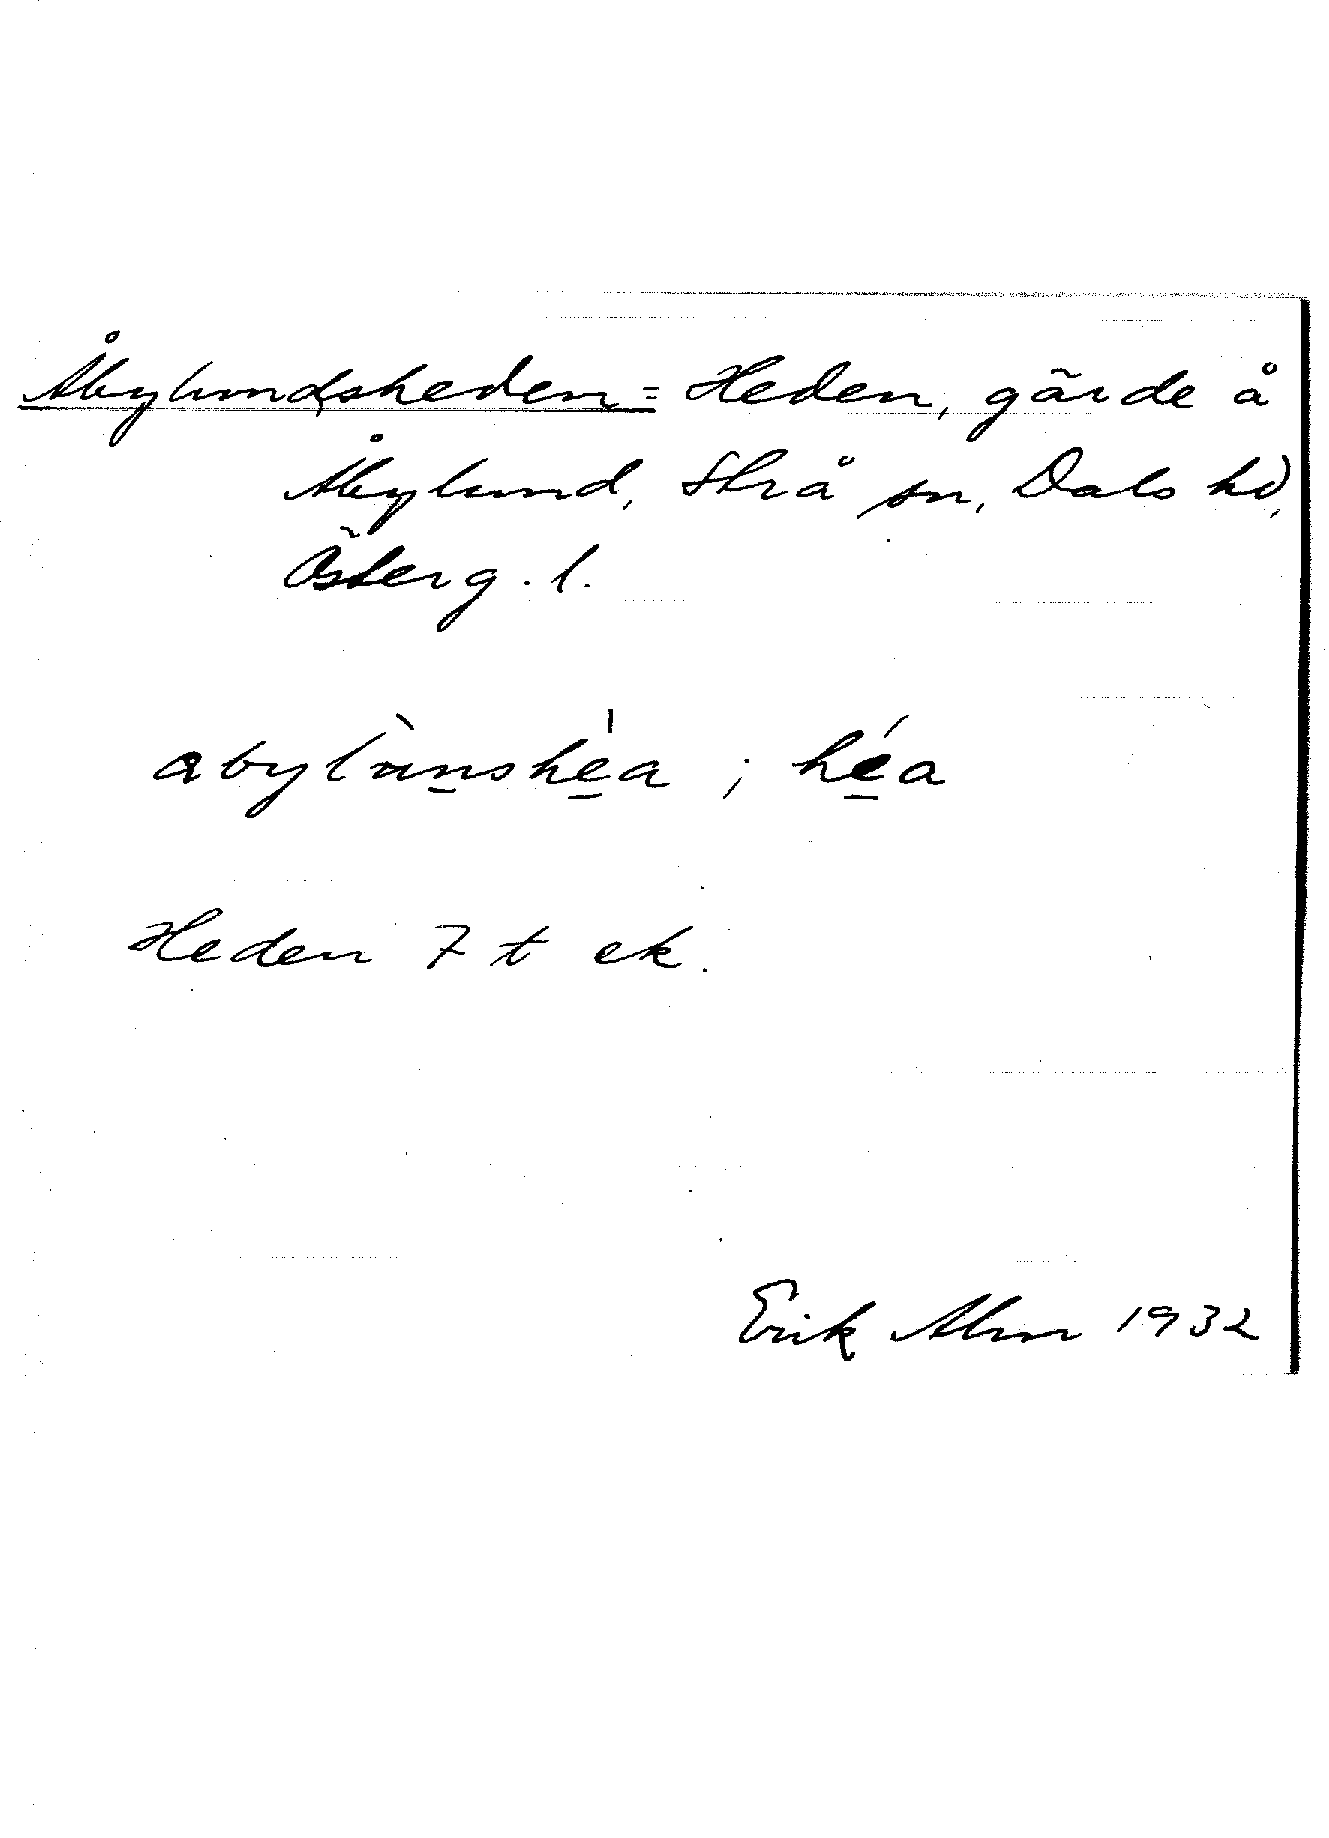 Åbylundsheden = Heden, gärde å
Åbylund, Strå sn, Dals hd,
Österg. l.
abylùns̲hé̲a ; hé̲a
Heden 7 t ek.
Erik Alm 1932